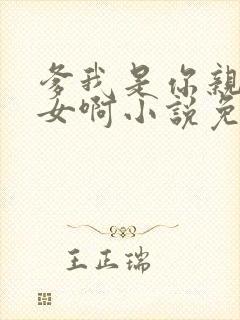 爹我是你親
女啊小說免
王正瑞